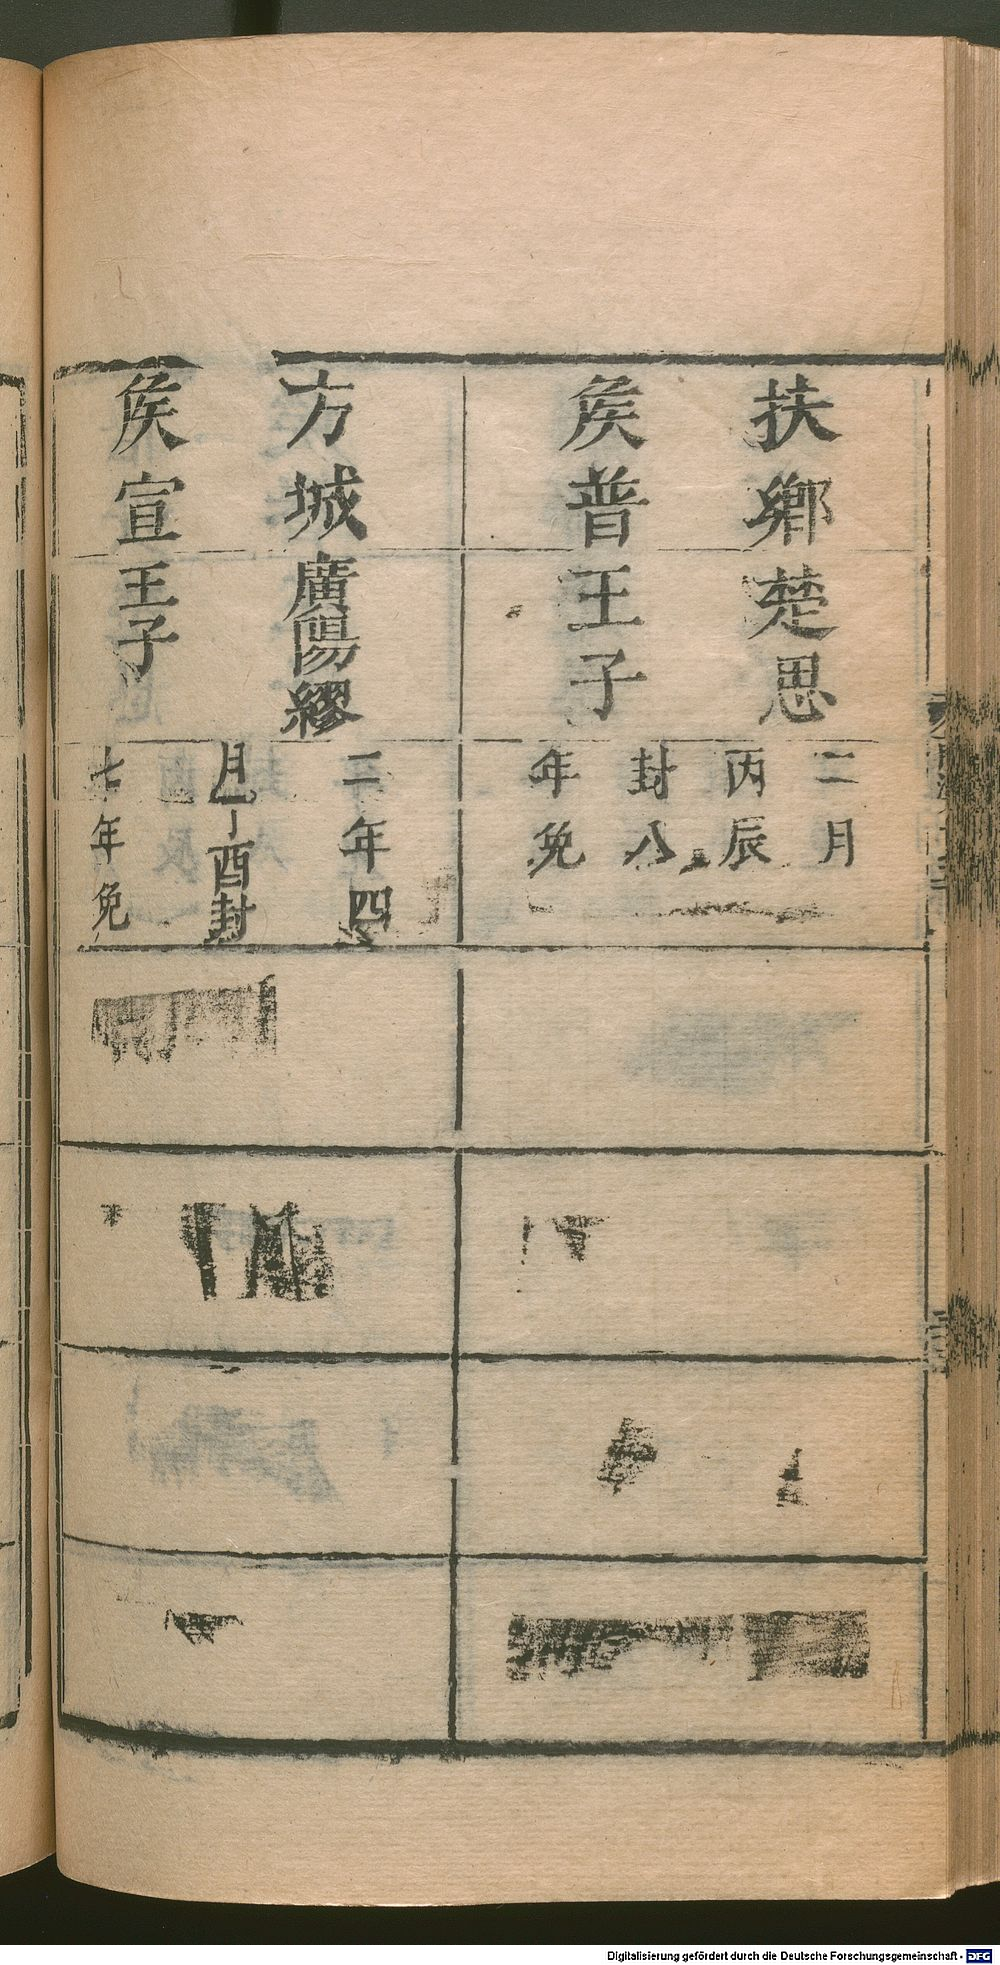 扶鄉
侯普
楚思
王子
二月
丙辰
封八
年免
方城
侯宣
廣陽繆
王子
二年四
月丁酉封
七年免
Digitalisierung gefördert durch die Deutsche Forschungsgemeinschaft - DFG